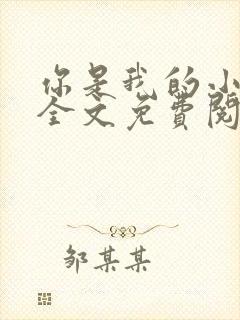 你是我的小
全文免费阅
邹某某